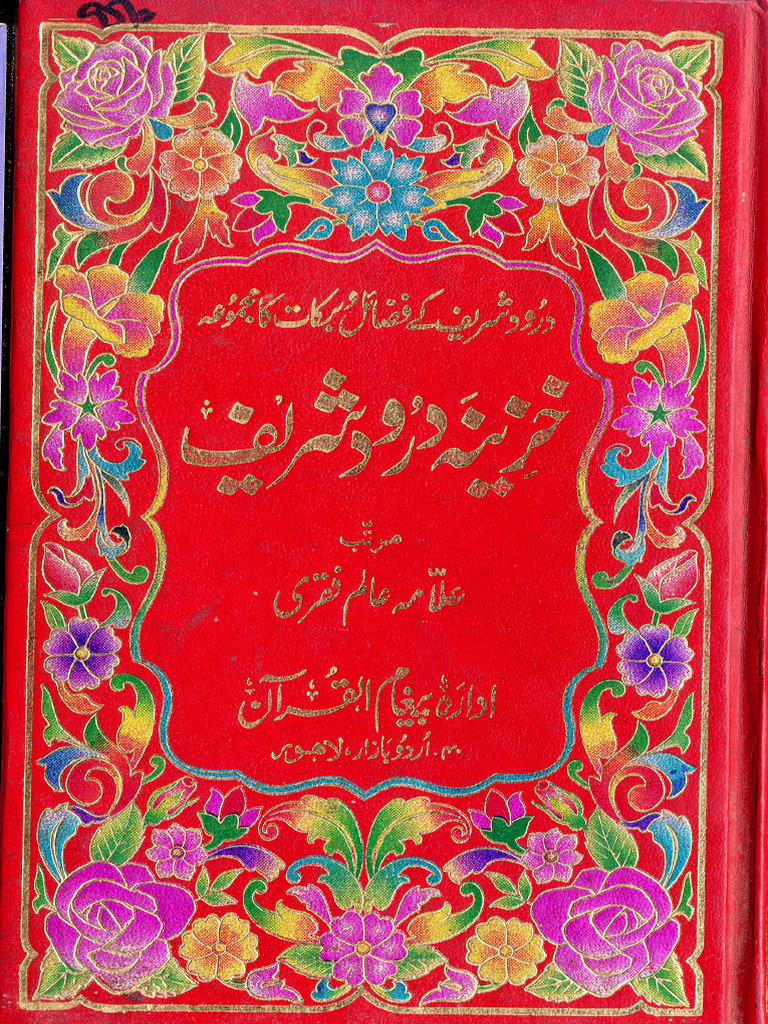 درود شریف کے فضائل و برکات کا مجموعہ
خزینہ درود شریف
مرتب
علامہ عالم فقری
ادارہ پیغام القرآن
۴۰۔ اردو بازار، لاہور